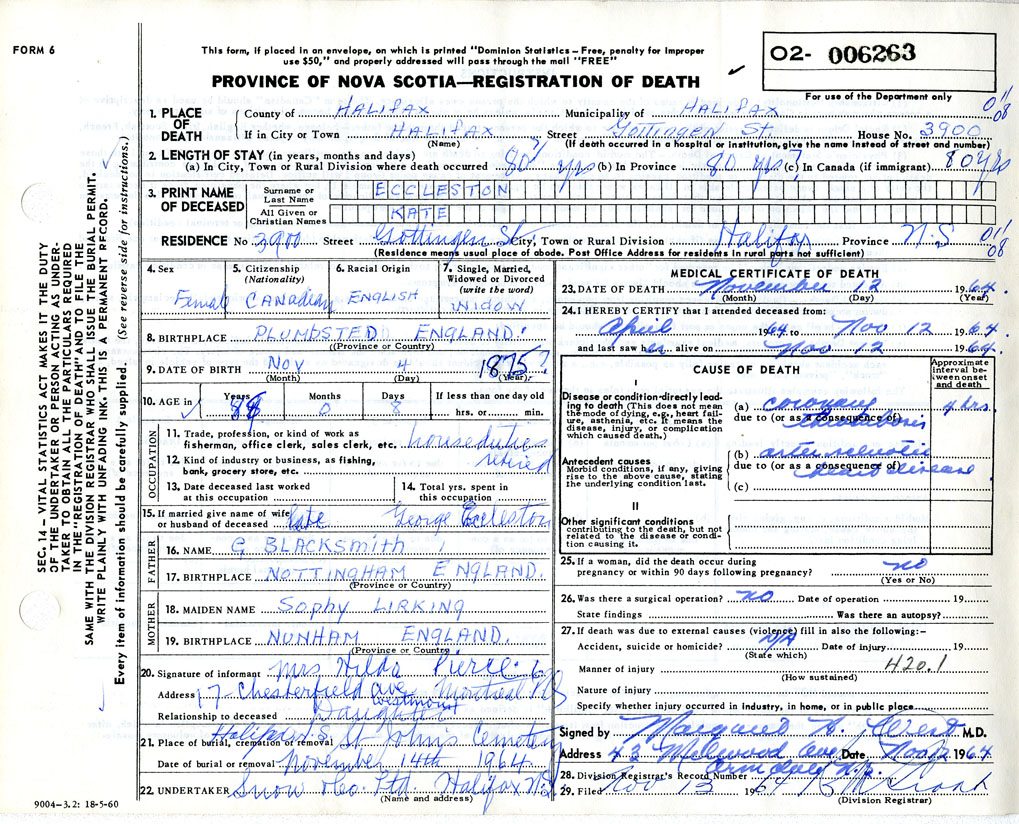 FORM 6
This form, if placed in an envelope, on which is printed "Dominion Statistics – Free, penalty for improper
use $50," and properly addressed will pass through the mail "FREE"
O2- 006263
For use of the Department only
PROVINCE OF NOVA SCOTIA—REGISTRATION OF DEATH
1. PLACE OF DEATH County of HALIFAX Municipality of HALIFAX 011 08
If in City or Town HALIFAX (Name) Street Gottingen St. House No. 3900
(If death occurred in a hospital or institution, give the name instead of street and number)
2. LENGTH OF STAY (in years, months and days)
(a) In City, Town or Rural Division where death occurred 80 ? yrs (b) In Province 80 yrs ? (c) In Canada (if immigrant) 80 yrs
3. PRINT NAME OF DECEASED Surname or Last Name ECCLESTON
All Given or Christian Names KATE
RESIDENCE No. 3900 Street Gottingen St City, Town or Rural Division Halifax Province N.S 011 08
(Residence means usual place of abode. Post Office Address for residents in rural parts not sufficient)
4. Sex Female
5. Citizenship (Nationality) CANADIAN
6. Racial Origin ENGLISH
7. Single, Married, Widowed or Divorced (write the word) WIDOW
8. BIRTHPLACE PLUMBSTED ENGLAND.
(Province or Country)
9. DATE OF BIRTH Nov (Month) 4 (Day) 1875 ? (Year)
10. AGE in Years Months 0 Days 8 If less than one day old hrs. or min.
OCCUPATION
11. Trade, profession, or kind of work as fisherman, office clerk, sales clerk, etc. house duties
12. Kind of industry or business, as fishing, bank, grocery store, etc. retired
13. Date deceased last worked at this occupation
14. Total yrs. spent in this occupation
15. If married give name of wife or husband of deceased late George Eccleston
FATHER
16. NAME G BLACKSMITH
17. BIRTHPLACE NOTTINGHAM ENGLAND.
(Province or Country)
MOTHER
18. MAIDEN NAME Sophy LIRKING
19. BIRTHPLACE NUNHAM ENGLAND.
(Province or Country)
20. Signature of informant Mrs Hilda Pierce
Address 17 Chesterfield ave Westmount Montreal
Relationship to deceased Daughter
21. Place of burial, cremation or removal Halifax St John's Cemetery
Date of burial or removal November 14th 1964
22. UNDERTAKER Snow & Co. Ltd. Halifax N.S
(Name and address)
MEDICAL CERTIFICATE OF DEATH
23. DATE OF DEATH November (Month) 12 (Day) 1964 (Year)
24. I HEREBY CERTIFY that I attended deceased from:
April 1964 to Nov 12 1964
and last saw her alive on Nov 12 1964.
CAUSE OF DEATH
Approximate interval between onset and death
I
Disease or condition directly leading to death (This does not mean the mode of dying, e.g., heart failure, asthenia, etc. It means the disease, injury, or complication which caused death.)
(a) coronary 4 hrs
due to (or as a consequence of) thrombosis
Antecedent causes
Morbid conditions, if any, giving rise to the above cause, stating the underlying condition last.
(b) arteriosclerotic
due to (or as a consequence of) heart disease
(c)
II
Other significant conditions
contributing to the death, but not related to the disease or condition causing it.
25. If a woman, did the death occur during pregnancy or within 90 days following pregnancy? no
(Yes or No)
26. Was there a surgical operation? no Date of operation 19
State findings Was there an autopsy?
27. If death was due to external causes (violence) fill in also the following:–
Accident, suicide or homicide? N/A (State which) Date of injury 19
Manner of injury 420.1
(How sustained)
Nature of injury
Specify whether injury occurred in industry, in home, or in public place
Signed by Margaret M.D.
Address 42 Ave Armdale N.S. Date Nov 12 1964
28. Division Registrar's Record Number
29. Filed Nov 13 1964
(Division Registrar)
SEC. 14 – VITAL STATISTICS ACT MAKES IT THE DUTY
OF THE UNDERTAKER OR PERSON ACTING AS UNDER-
TAKER TO OBTAIN ALL THE PARTICULARS REQUIRED
IN THE "REGISTRATION OF DEATH" AND TO FILE THE
SAME WITH THE DIVISION REGISTRAR WHO SHALL ISSUE THE BURIAL PERMIT.
WRITE PLAINLY WITH UNFADING INK. THIS IS A PERMANENT RECORD.
Every item of information should be carefully supplied. (See reverse side for instructions.)
9004–3.2: 18-5-60